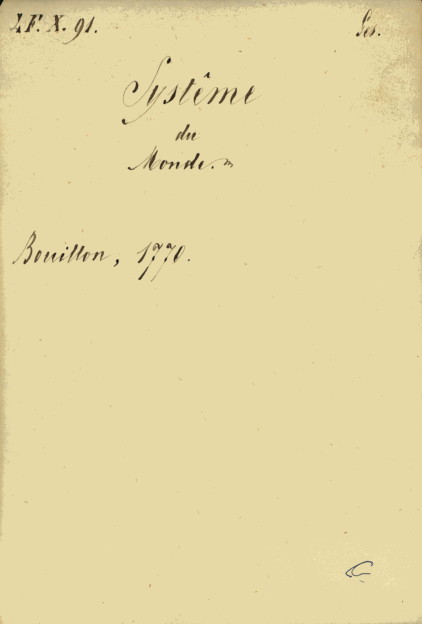 4F. X. 91.
Ses.
Système
du
Monde.
Bouillon, 1770.